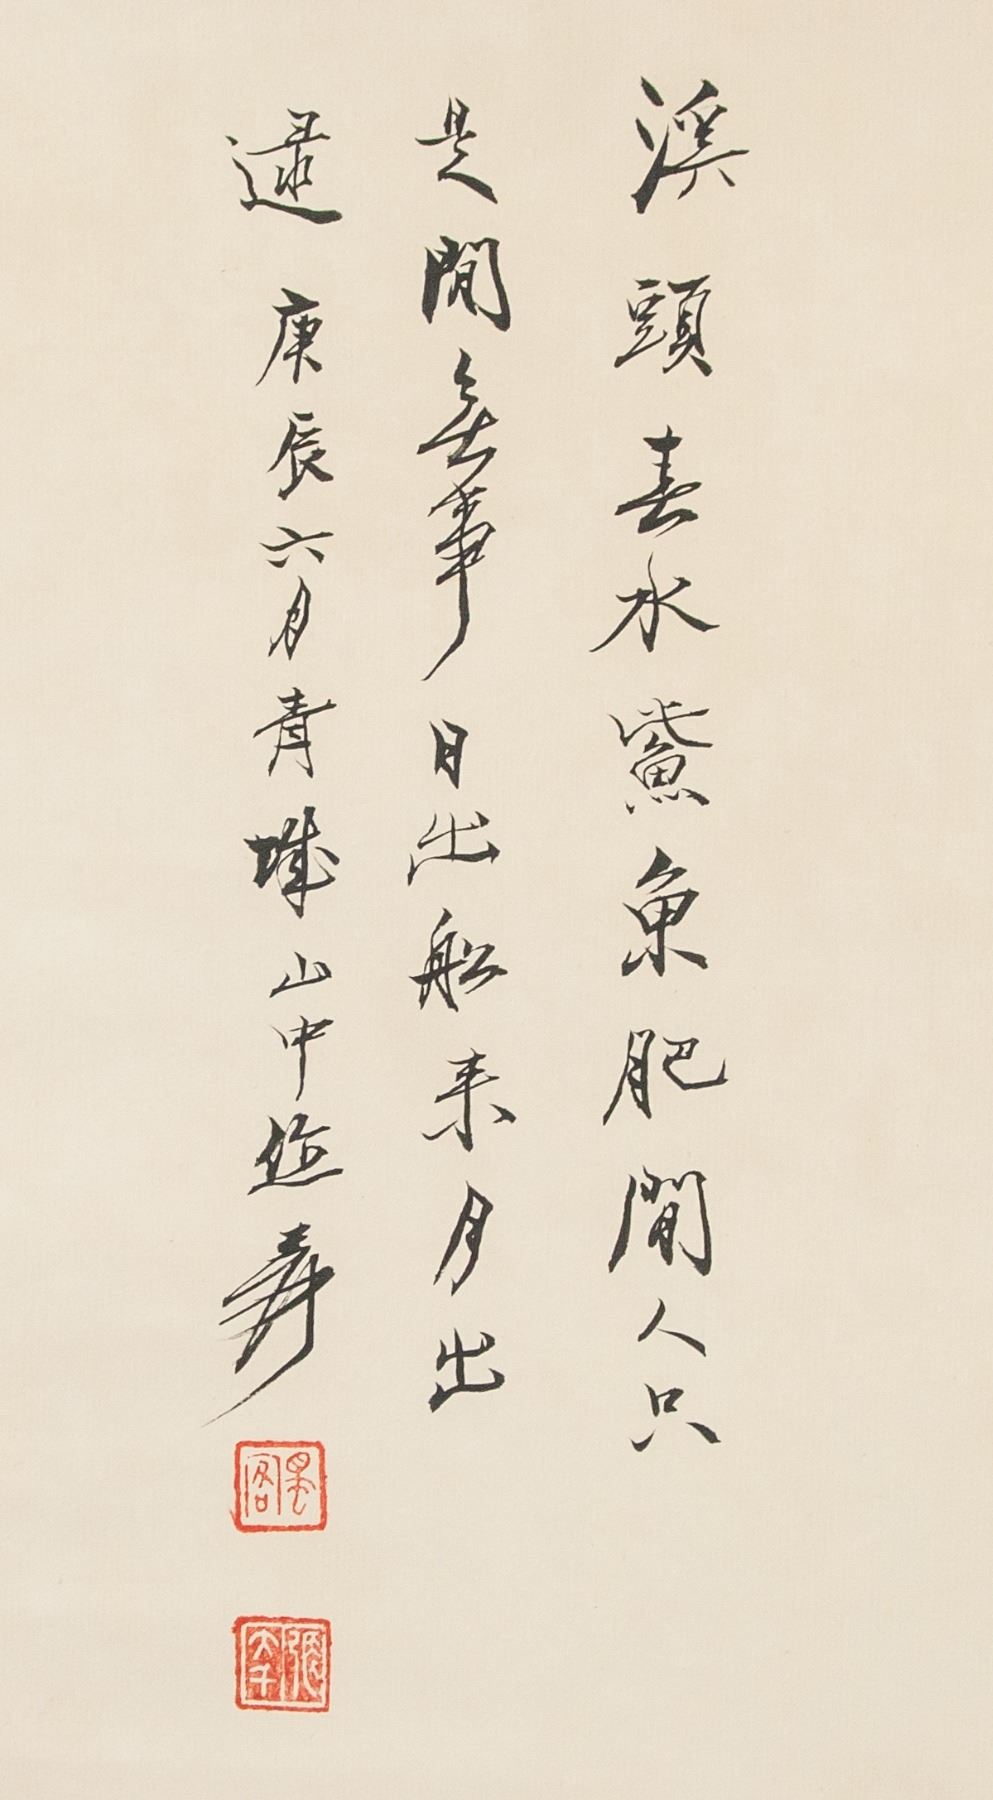 溪頭春水鮆魚肥閒人只
是閒無事日出船来月出
逮 庚辰六月青城山中 爰
蜀客
張大千